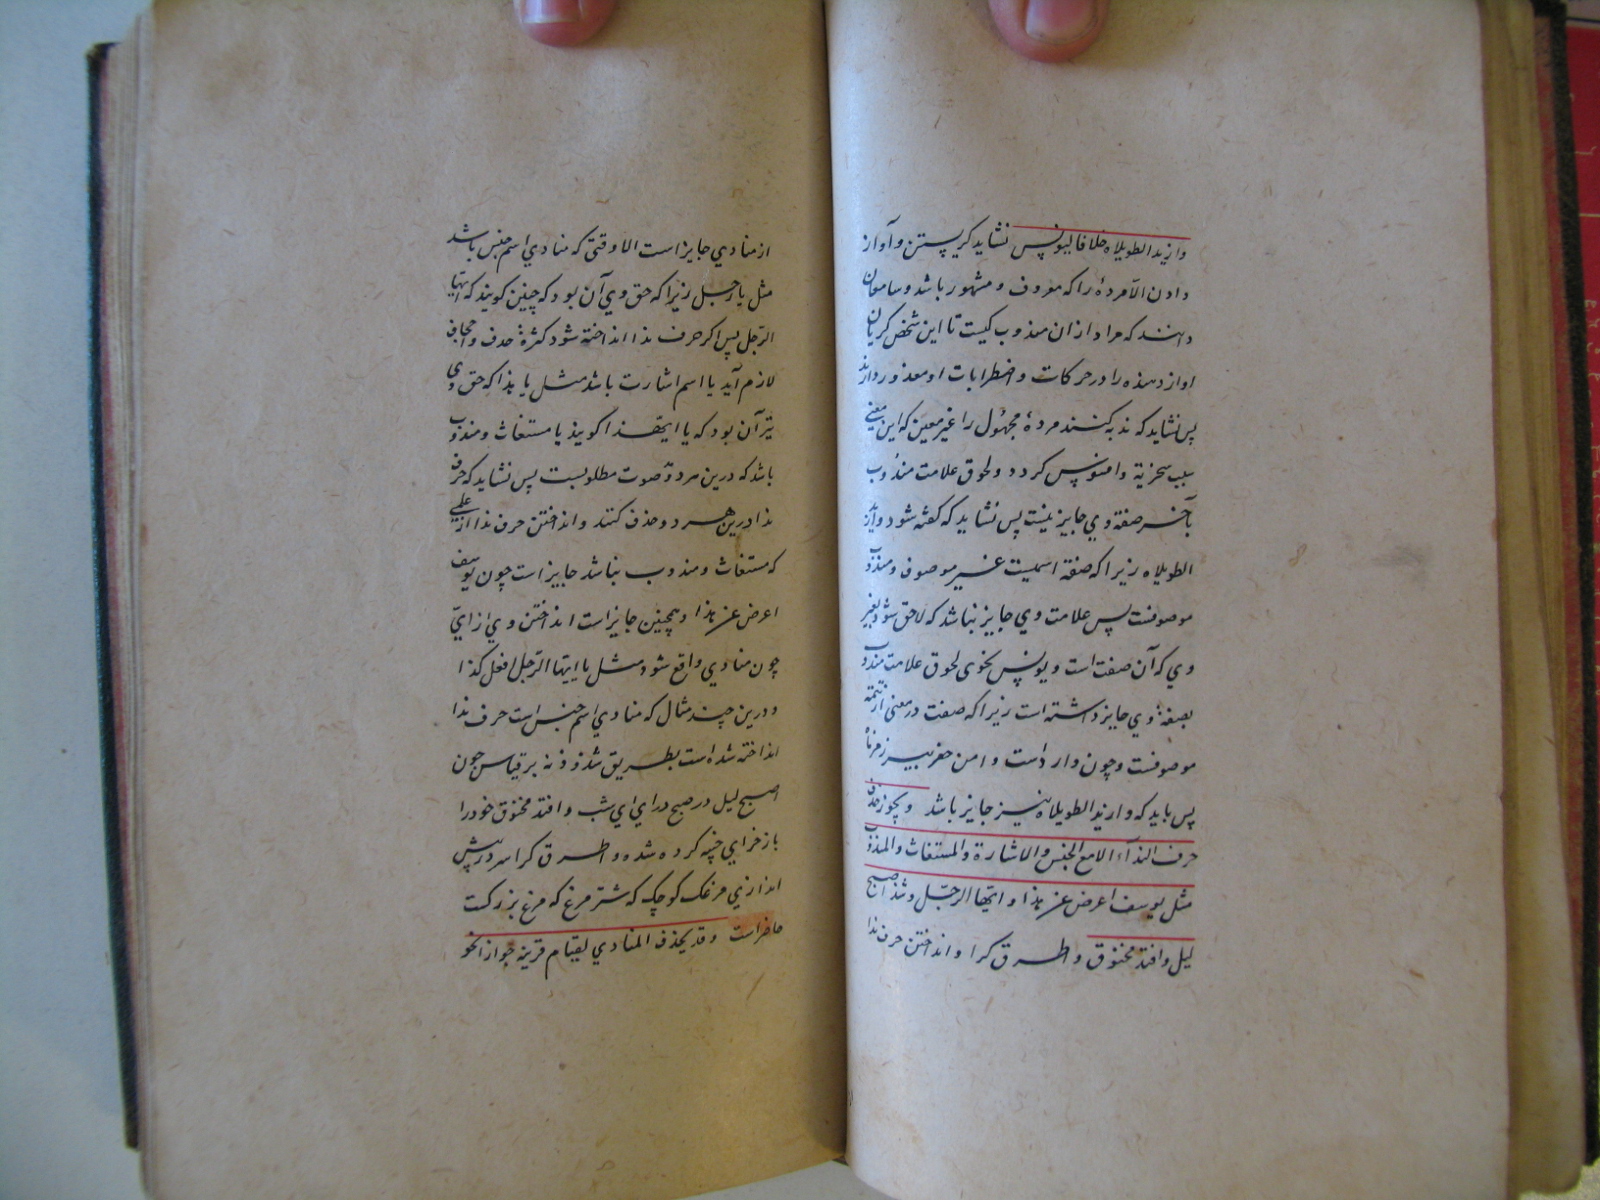 وازید الطویلاه خلافا لیونس نشاید کریستن و آواز
دادن الا مردهٔ را که معروف و مشهور باشد و سامعان
دانند که مراد ازان مندوب کیست تا این شخص کریان
اواز دهنده را در حرکات و اضطرابات او معذور دارند
پس نشاید که ندبه کنند مردهٔ مجهول را غیر معین که این معنی
سبب سخریة وافسوس کردد و لحوق علامت مندوب
بآخر صفة وی جایز نیست پس نشاید که کفته شود وازید
الطویلاه زیرا که صفة اسمیست غیر موصوف و مندوب
موصوفست پس علامت وی جایز نباشد که لاحق شود بغیر
وی که آن صفت است و یونس نحوی لحوق علامت مندوب
بصفهٔ وی جایز داشته است زیرا که صفت در معنی از تتمهٔ
موصوفست و چون وارد است وامن حفر بیر زمزماه
پس باید که وازید الطویلاه نیز جایز باشد ویجوز حذف
حرف الندآء الا مع الجنس والاشارة والمستغاث والمندوب
مثل یوسف اعرض عن هذا وایها الرجل وشذ اصبح
لیل وافتد مخنوق واطرق کرا وانداختن حرف ندا
از منادی جایز است الا وقتی که منادی اسم جنس باشد
مثل یا رجل زیرا که حق وی آن بود که چنین کویند که یا ایها
الرجل پس اکر حرف ندا انداخته شود کثرة حذف و اجحاف
لازم آید یا اسم اشارت باشد مثل یا هذا که حق وی
نیز آن بود که یا ایهذا کویند یا مستغاث و مندوب
باشد که درین هر دو صوت مطلوبست پس نشاید که حرف
ندا درین هر دو حذف کنند و انداختن حرف ندا از علمی
که مستغاث و مندوب نباشد جایز است چون یوسف
اعرض عن هذا و همچنین جایز است انداختن وی از ایّ
چون منادی واقع شود مثل یا ایها الرجل افعل کذا
و درین چند مثال که منادی اسم جنس است حرف ندا
انداخته شده است بطریق شذوذ نه بر قیاس چون
اصبح لیل در صبح درای ای شب وافتد مخنوق خود را
باز خر ای خپه کرده شده واطرق کرا سر در پیش
انداز ی مرغک کوچک که شتر مرغ که مرغ بزرکست
حاضر است وقد یحذف المنادی لقیام قرینة جوازا نحو